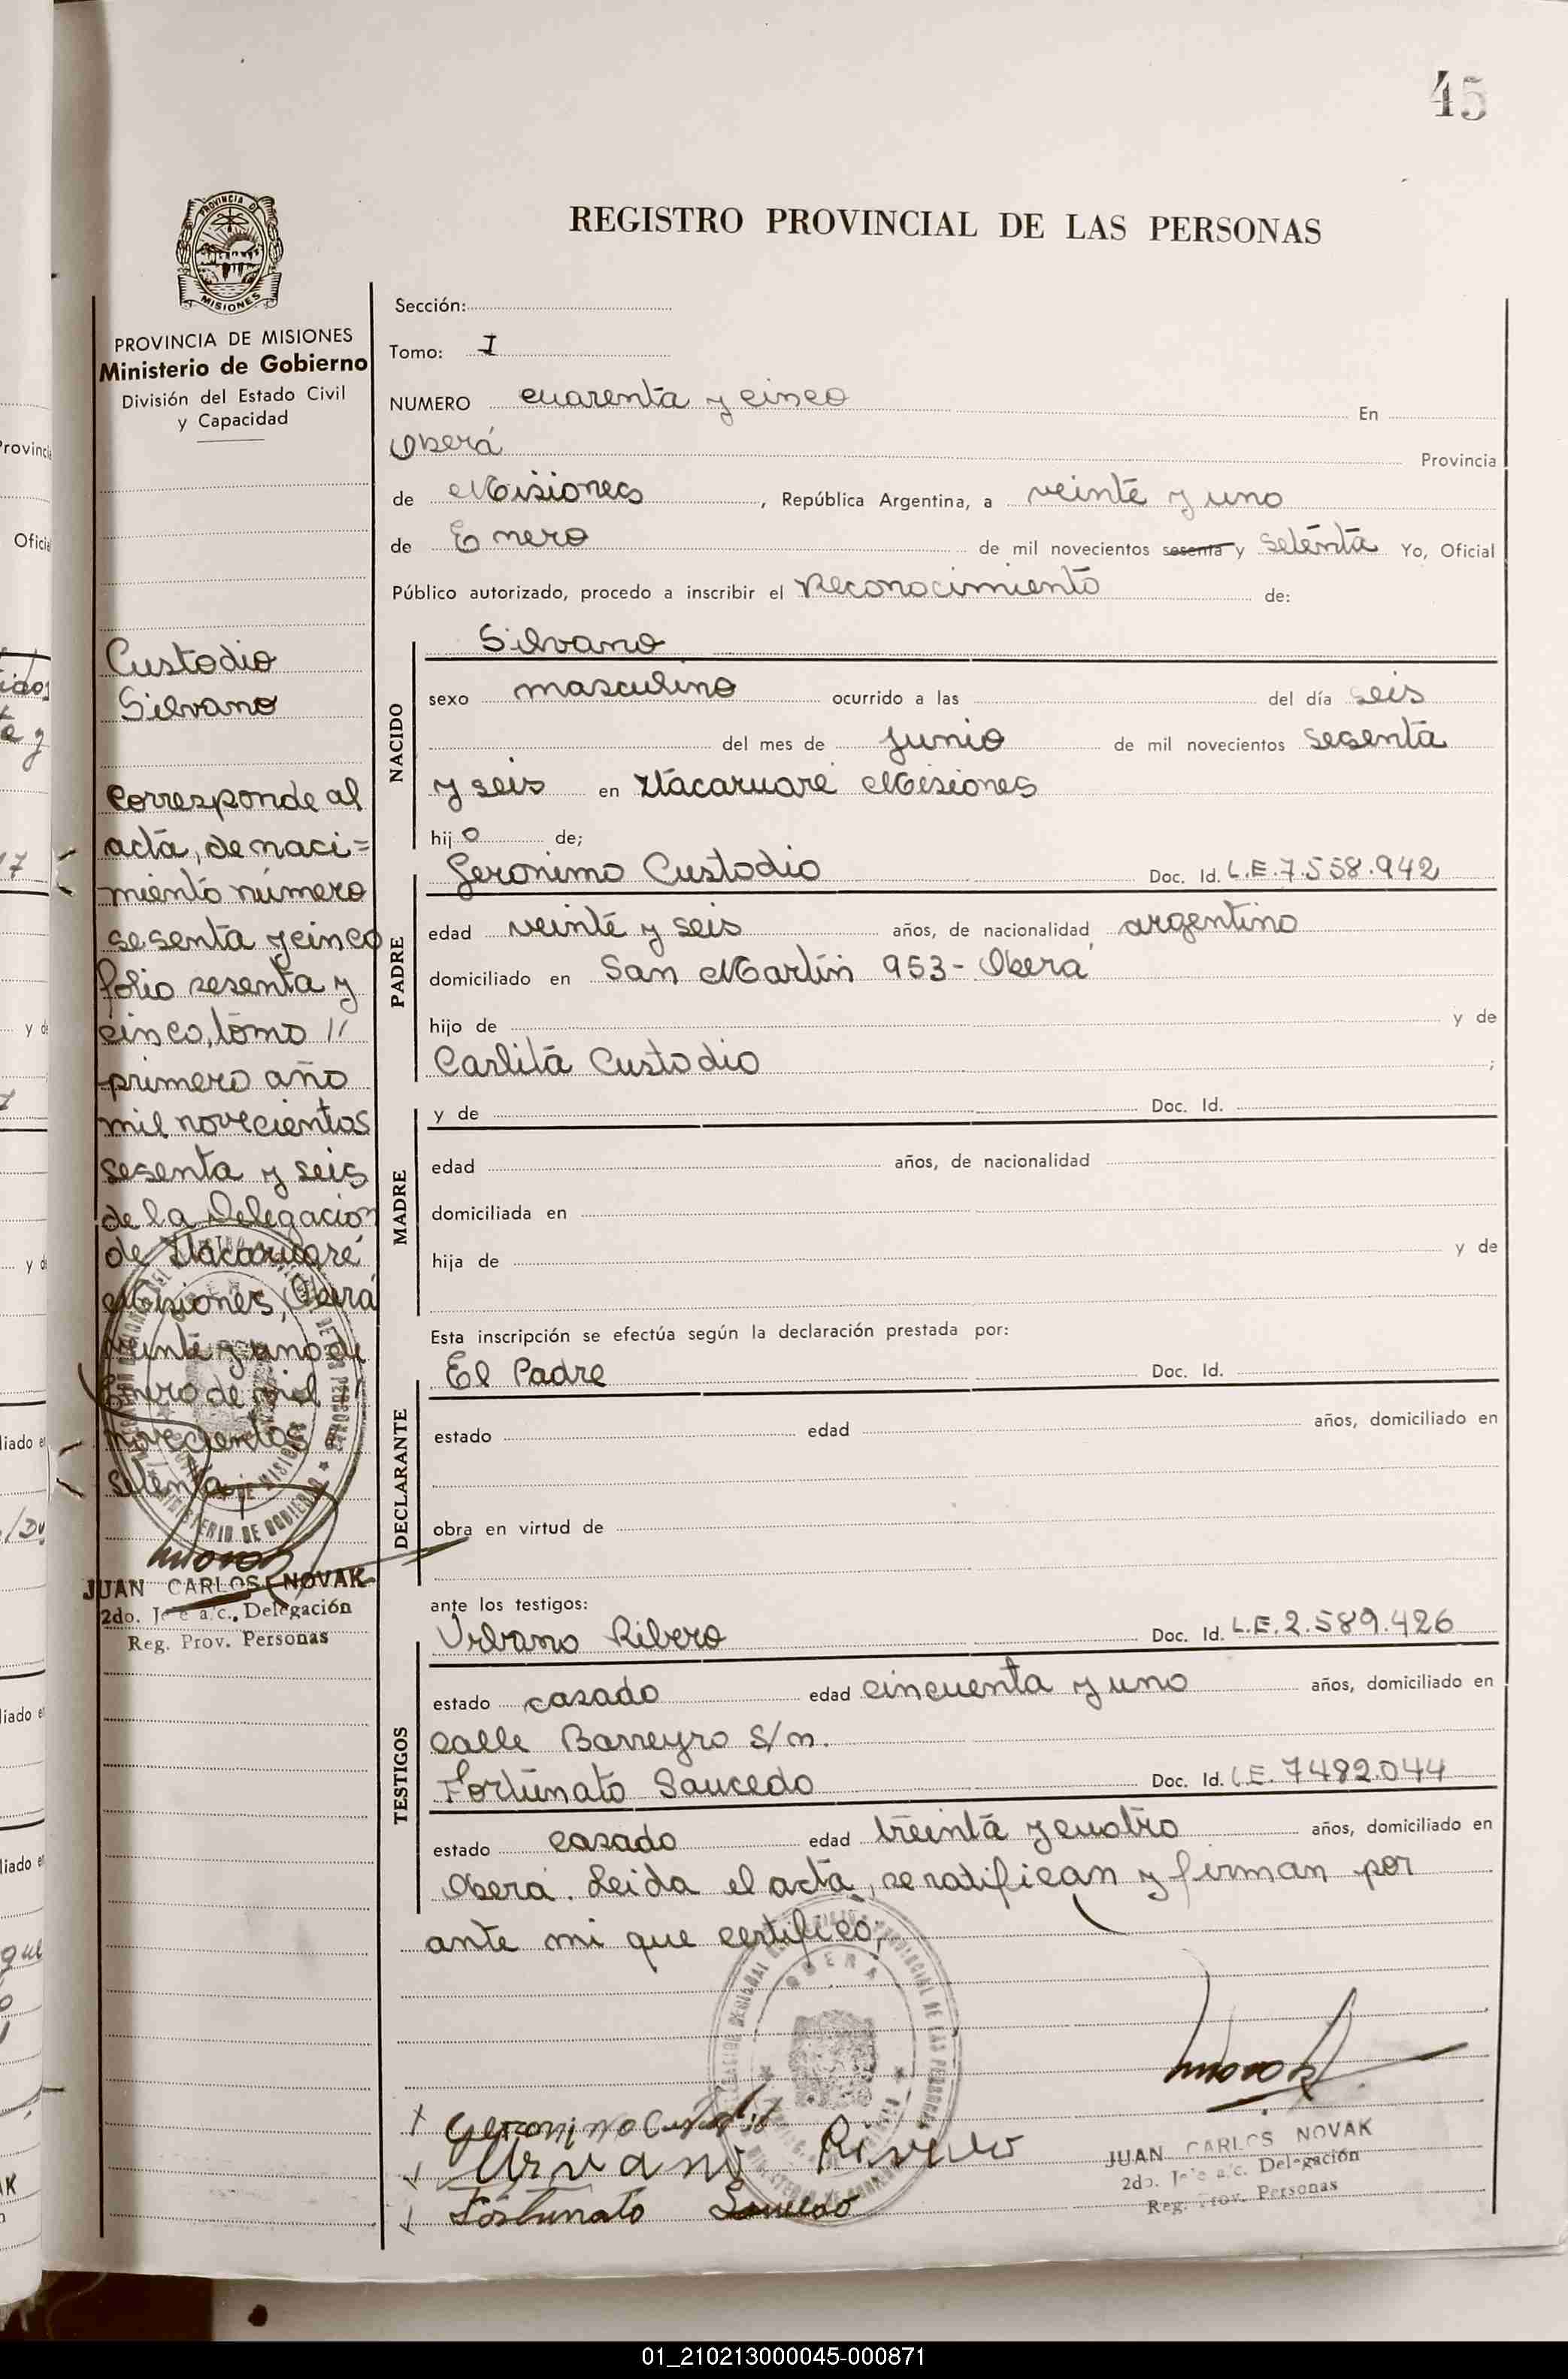 45
PROVINCIA DE
MISIONES
PROVINCIA DE MISIONES
Ministerio de Gobierno
División del Estado Civil
y Capacidad
Custodio
Silvano
Corresponde al
acta, de naci=
miento número
sesenta y cinco
folio sesenta y
cinco, tomo //
primero año
mil novecientos
sesenta y seis
de la Delegación
de Itacaruaré
Misiones, Oberá
veinte y uno de
Enero de mil
novecientos
setenta
JUAN CARLOS NOVAK
2do. Jefe a/c., Delegación
Reg. Prov. Personas
REGISTRO PROVINCIAL DE LAS PERSONAS
Sección:
Tomo: I
NUMERO cuarenta y cinco En
Oberá Provincia
de Misiones, República Argentina, a veinte y uno
de Enero de mil novecientos sesenta y setenta Yo, Oficial
Público autorizado, procedo a inscribir el Reconocimiento de:
NACIDO
Silvano
sexo masculino ocurrido a las del día seis
del mes de junio de mil novecientos sesenta
y seis en Itacaruaré Misiones
hijo de;
PADRE
Geronimo Custodio Doc. Id. L.E.7.558.942
edad veinte y seis años, de nacionalidad argentino
domiciliado en San Martín 953- Oberá
hijo de y de
Carlita Custodio ;
MADRE
y de Doc. Id.
edad años, de nacionalidad
domiciliada en
hija de y de
Esta inscripción se efectúa según la declaración prestada por:
DECLARANTE
El Padre Doc. Id.
estado edad años, domiciliado en
obra en virtud de
ante los testigos:
TESTIGOS
Urbano Ribero Doc. Id. L.E.2.589.426
estado casado edad cincuenta y uno años, domiciliado en
calle Barreyro S/n.
Fortunato Saucedo Doc. Id. L.E. 7492.044
estado casado edad treinta y cuatro años, domiciliado en
Oberá. Leida el acta, se ratifican y firman por
ante mi que certifico,
OBERA
Geronimo Custodio
Urvano Rivero
Fortunato Saucedo
JUAN CARLOS NOVAK
2do. Jefe a/c. Delegación
Reg. Prov. Personas
01_210213000045-000871